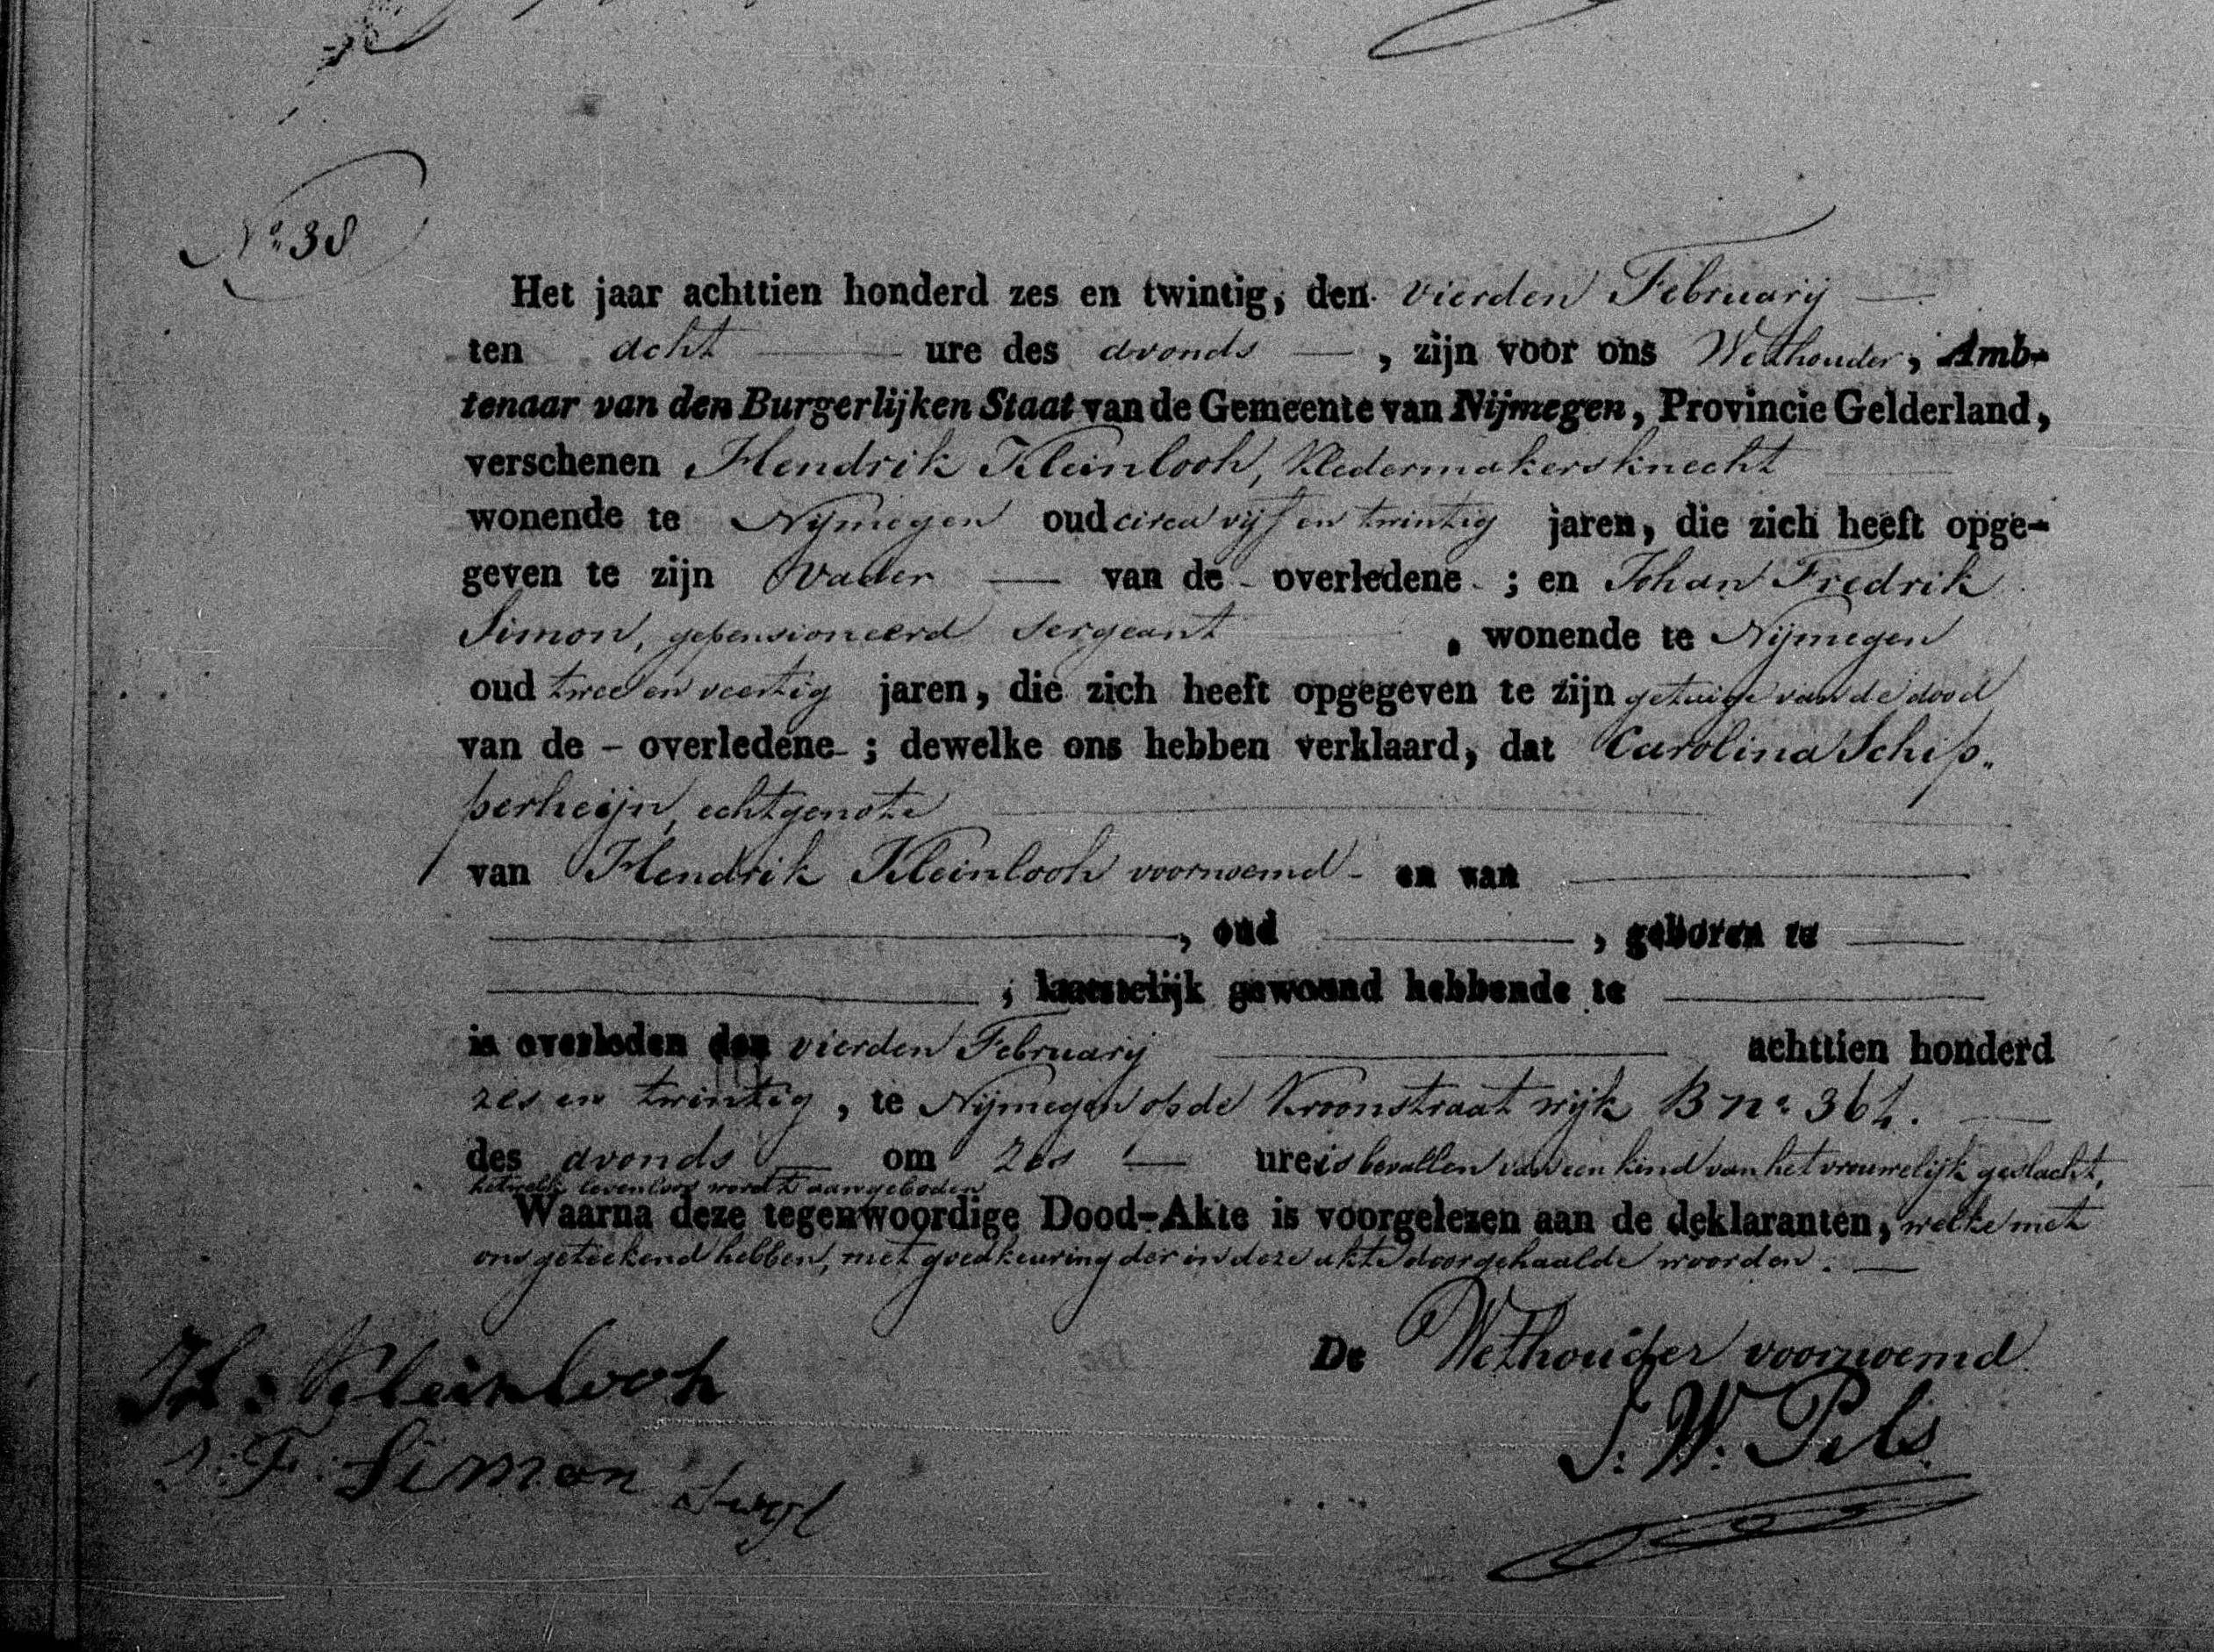 No. 38
Het jaar achttien honderd zes en twintig, den vierden Februarij
ten acht ure des avonds, zijn voor ons Wethouder, Amb-
tenaar van den Burgerlijken Staat van de Gemeente van Nijmegen, Provincie Gelderland,
verschenen Hendrik Kleinlooh, Kledermakersknecht
wonende te Nijmegen oud circa vijf en twintig jaren, die zich heeft opge-
geven te zijn Vader van de - overledene - ; en Johan Fredrik
Simon, gepensioneerd Sergeant, wonende te Nijmegen
oud twee en veertig jaren, die zich heeft opgegeven te zijn getuige van de dood
van de - overledene - ; dewelke ons hebben verklaard, dat Carolina Schip„
perheijn, echtgenote
van Hendrik Kleinlooh voornoemd - en van
, oud , geboren te
, laatstelijk gewoond hebbende te
is overleden den vierden Februarij achttien honderd
zes en twintig, te Nijmegen op de Kroonstraat wijk B no. 364.
des avonds om zes ure is bevallen van een kind van het vrouwelijk geslacht,
hetwelk levenloos wordt aangeboden
Waarna deze tegenwoordige Dood-Akte is voorgelezen aan de deklaranten, welke met
ons geteekend hebben, met goedkeuring der in deze akte doorgehaalde woorden.
De Wethouder voornoemd
H: Kleinlooh
J. W. Pels
J: F: Simon